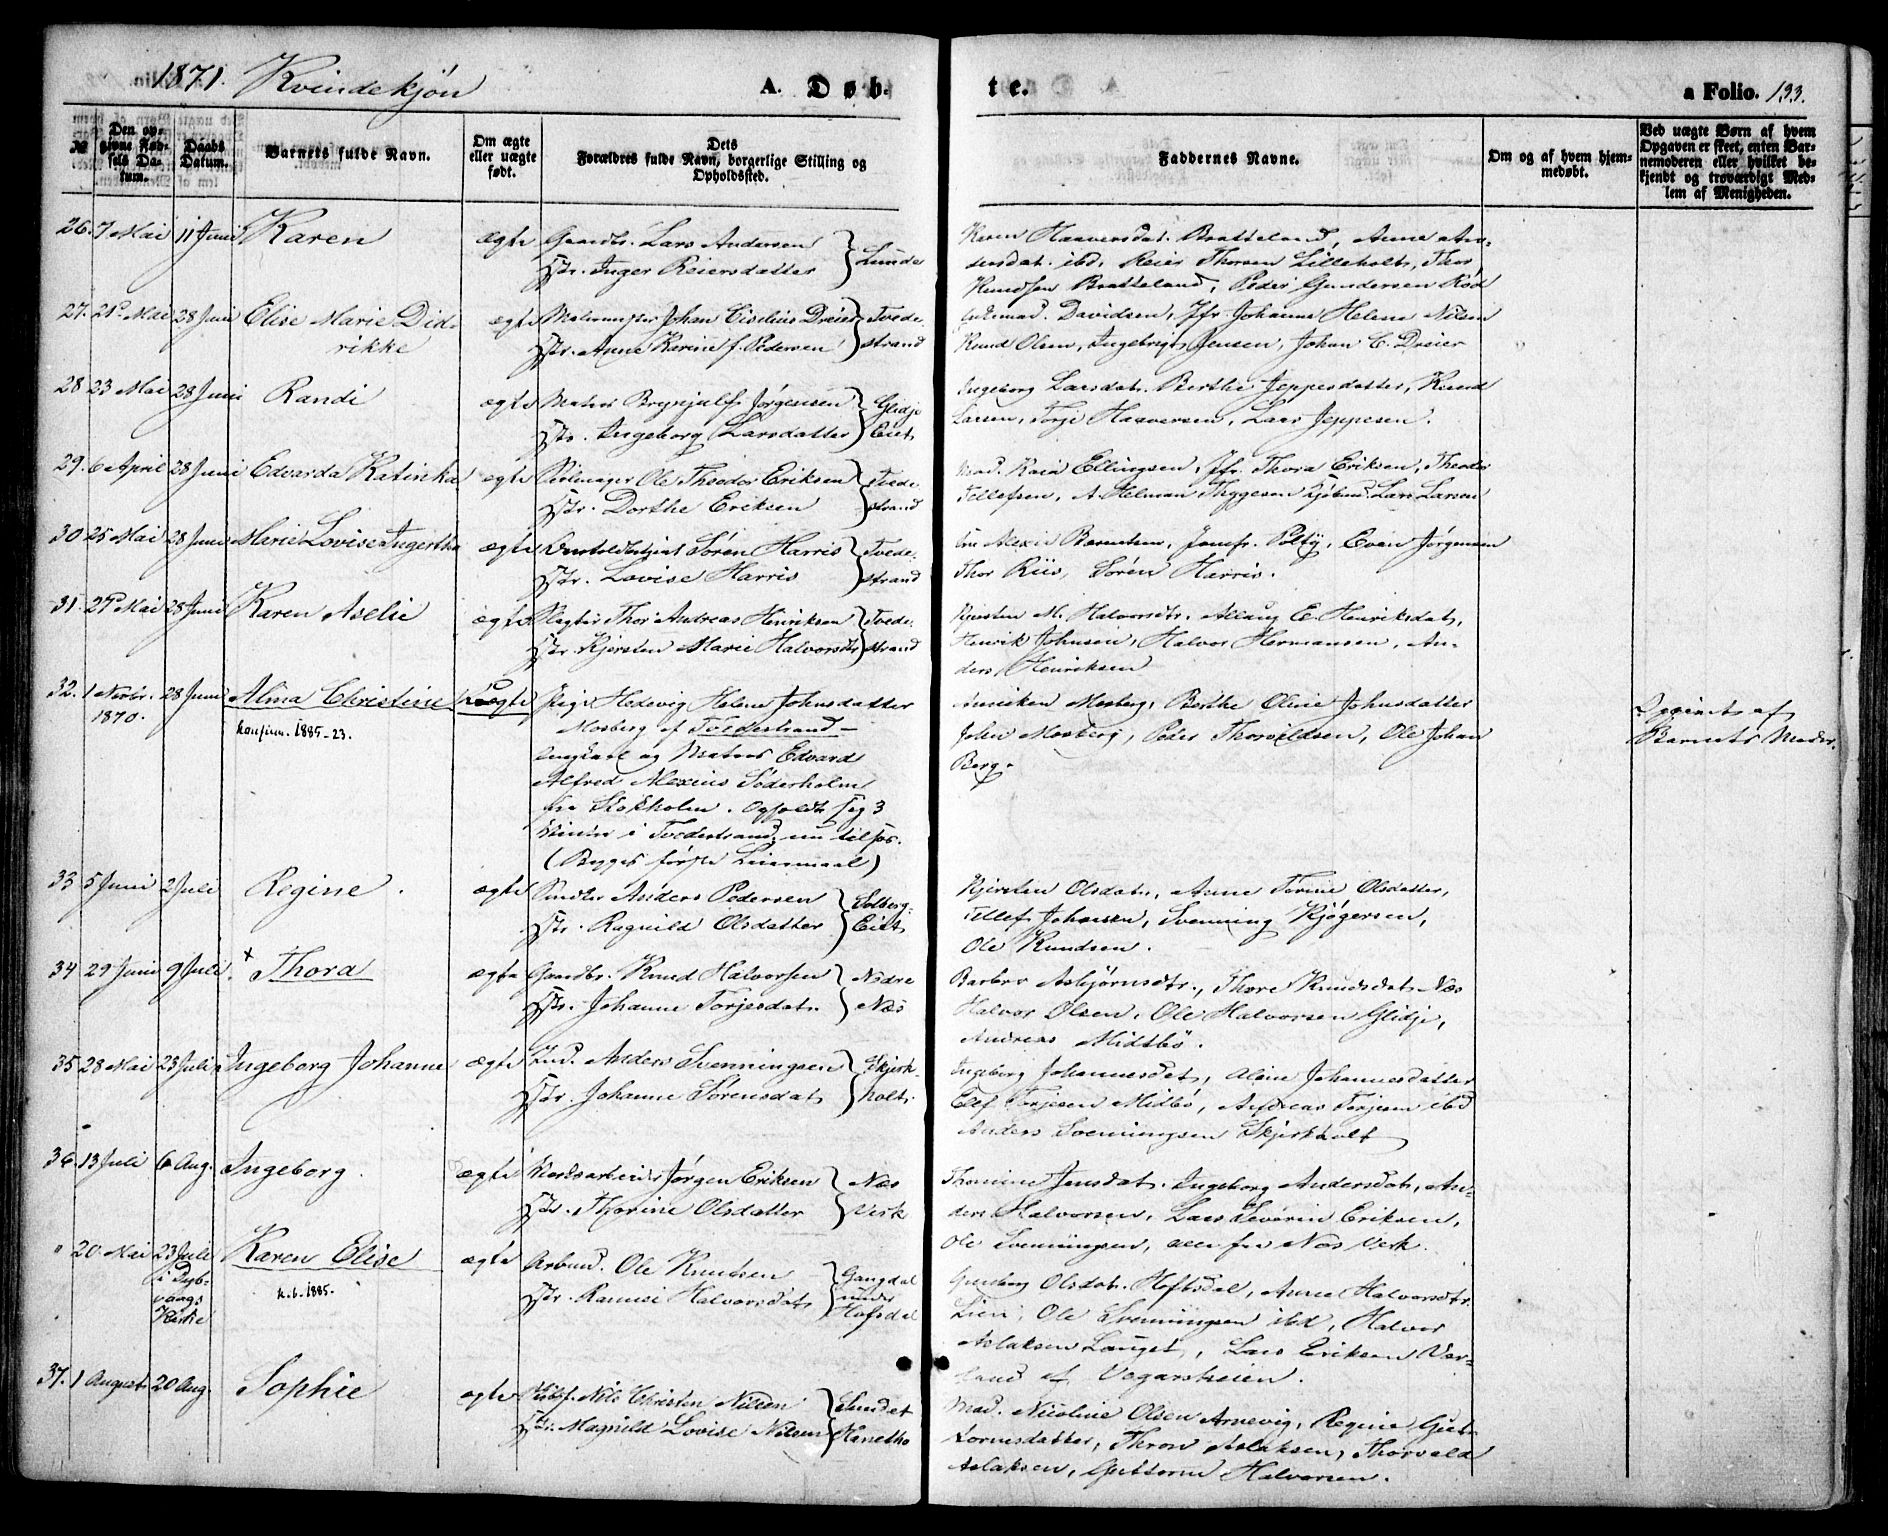 1871. Kvindekjøn
A. Døb- te.
a Folio. 133.
№ Den opgivne Fødsels Datum. Daabs Datum. Barnets fulde Navn. Om ægte eller uægte født. Dets Forældres fulde Navn, borgerlige Stilling og Opholdssted. Faddernes Navne. Om og af hvem hjemmedøbt. Ved uægte Børn af hvem Opgaven er skeet, enten Barnemoderen eller hvilket bekjendt og troværdigt Medlem af Menigheden.
26. 7 Mai 11 Juni Karen ægte Gaardbr. Lars Andersen } Lunde
Hstr. Inger Reiersdatter
Karen Haaversdat. Bratteland, Anne An-
dersdat. ibd, Reier Thorsen Lilleholt, Thor
Knudsen Bratteland, Peder Gundersen Rød
27. 21 Mai 28 Juni Elise Marie Did- ægte Malermester Johan Cicelius Dreier } Tvede-
rikke Hstr. Anne Karine f. Pedersen strand
Davidsen, Jfr. Johanne Helene Nilsen
Knud Olsen, Ingebrigt Jensen, Johan C. Dreier
28 23 Mai 28 Juni Randi ægte Matros Brynjulf Jørgensen } Glidje
Hstr. Ingeborg Larsdatter Eiet
Ingeborg Larsdat. Berthe Jeppesdatter, Knud
Larsen, Torje Haaversen, Lars Jeppesen.
29. 6 April 28 Juni Edvarda Katinka ægte Seilmager Ole Theodor Eriksen } Tvede-
Hstr. Dorthe Eriksen strand
Mad. Kaia Ellingsen, Jfr. Thora Eriksen, Theodor
Tellefsen, A. Helman Thygesen Kjøbmd. Lars Larsen
30 25 Mai 28 Juni Marie Lovise Ingertha ægte Søren Harris } Tvede-
Hstr. Lovise Harris strand
Even Jørgensen
Thor Riis, Søren Harris.
31. 29 Mai 28 Juni Karen Aselie ægte Slagter Thor Andreas Henriksen } Tvede-
Hstr Kjersten Marie Halvorsdtr strand
Kjersten M. Halvorsdtr. Aslaug E. Henriksdat,
Henrik Johnsen, Halvor Hermansen, An-
ders Henriksen
32. 1 Novbr. 28 Juni Alma Christine Uægte Pige Hedevig Helene Johnsdatter
1870. Mosberg af Tvedestrand
konfirm. 1885-23.
ungkarl og Matros Edvard
Alfred Alexius Söderholm
fra Stokholm. Opholdt sig 3
Vinter i Tvedestrand, nu tilsjøs.
(Begges første Leiermaal)
Anniken Mosberg, Berthe Oline Johnsdatter
John Mosberg, Peder Thorvildsen, Ole Johan
Berg.
Opgivet af
Barnets Moder.
33 5 Juni 2 Juli Regine. ægte Anders Pedersen } Solberg-
Hstr. Ragnild Olsdatter Eiet
Kjersten Olsdat, Anne Torine Olsdatter,
Tellef Johnsen, Svenning Kjøgersen,
Ole Knudsen.
34 29 Juni 9 Juli. × Thora ægte Gaardbr. Knud Halvorsen } Nedre
Hstr. Johanne Torjesdat. Næs
Barbro Asbjørnsdtr., Thore Knudsdat. Næs
Halvor Olsen, Ole Halvorsen Glidje,
Andreas Midtbø.
35 28 Mai 23 Juli Ingeborg Johanne ægte Ind. Anders Svenningsen } Skjerk-
Hstr. Johanne Sørensdat holt.
Ingeborg Johannesdat, Alene Johannesdatter
Elef Torjesen Midbø, Andreas Torjesen ibd
Anders Svenningsen Skjerkholt
36. 13 Juli 6 Aug. Ingeborg. ægte Værksarbeider Jørgen Eriksen } Næs
Hstr. Thorine Olsdatter Verk
Thomine Jensdat. Ingeborg Andersdat, An-
ders Halvorsen, Lars Severin Eriksen,
Ole Svenningsen, alle fra Næs Verk.
" 20 Mai 23 Juli Karen Elise ægte Arbmd. Ole Knutsen } Gangdal
i Dyb- Hstr. Ramei Halvorsdat under
vaags k. 6. 1885. Hofsdal
Kirke
Gunborg Olsdat. Hoftsdal, Anne Halvorsdtr.
Lien, Ole Svenningsen ibd, Halvor
Aslaksen Lauget, Lars Eriksen Ver-
land af Vegarsheien.
37. 1 August 20 Aug. Sophie ægte Nils Christen Nilsen } Sundet
Hstr. Magnild Lovise Nilsen Hanetho
Mad. Nicoline Olsen Arnevig, Regine Gut-
tormsdatter, Thron Aslaksen, Thorvald
Aslaksen, Guttorm Halvorsen.